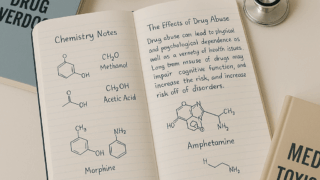 DRUG
VERDO
Chemistry Notes
O
CH₂O
Methanol
OH
CH₂OH
Acetic Acid
O
OH
CH₃
NH₂
OH
Morphine
The Effects of Drug Abuse
Drug abuse can lead to physical
and psychological dependence as
well as a variety of health issues.
Long term misuse of drugs may
impair cognitive function, and
increase the risk, and increase
risk off of disorders.
HO
CH₃
NH₂
Amphetamine
H
NH₂
MED
TOXI